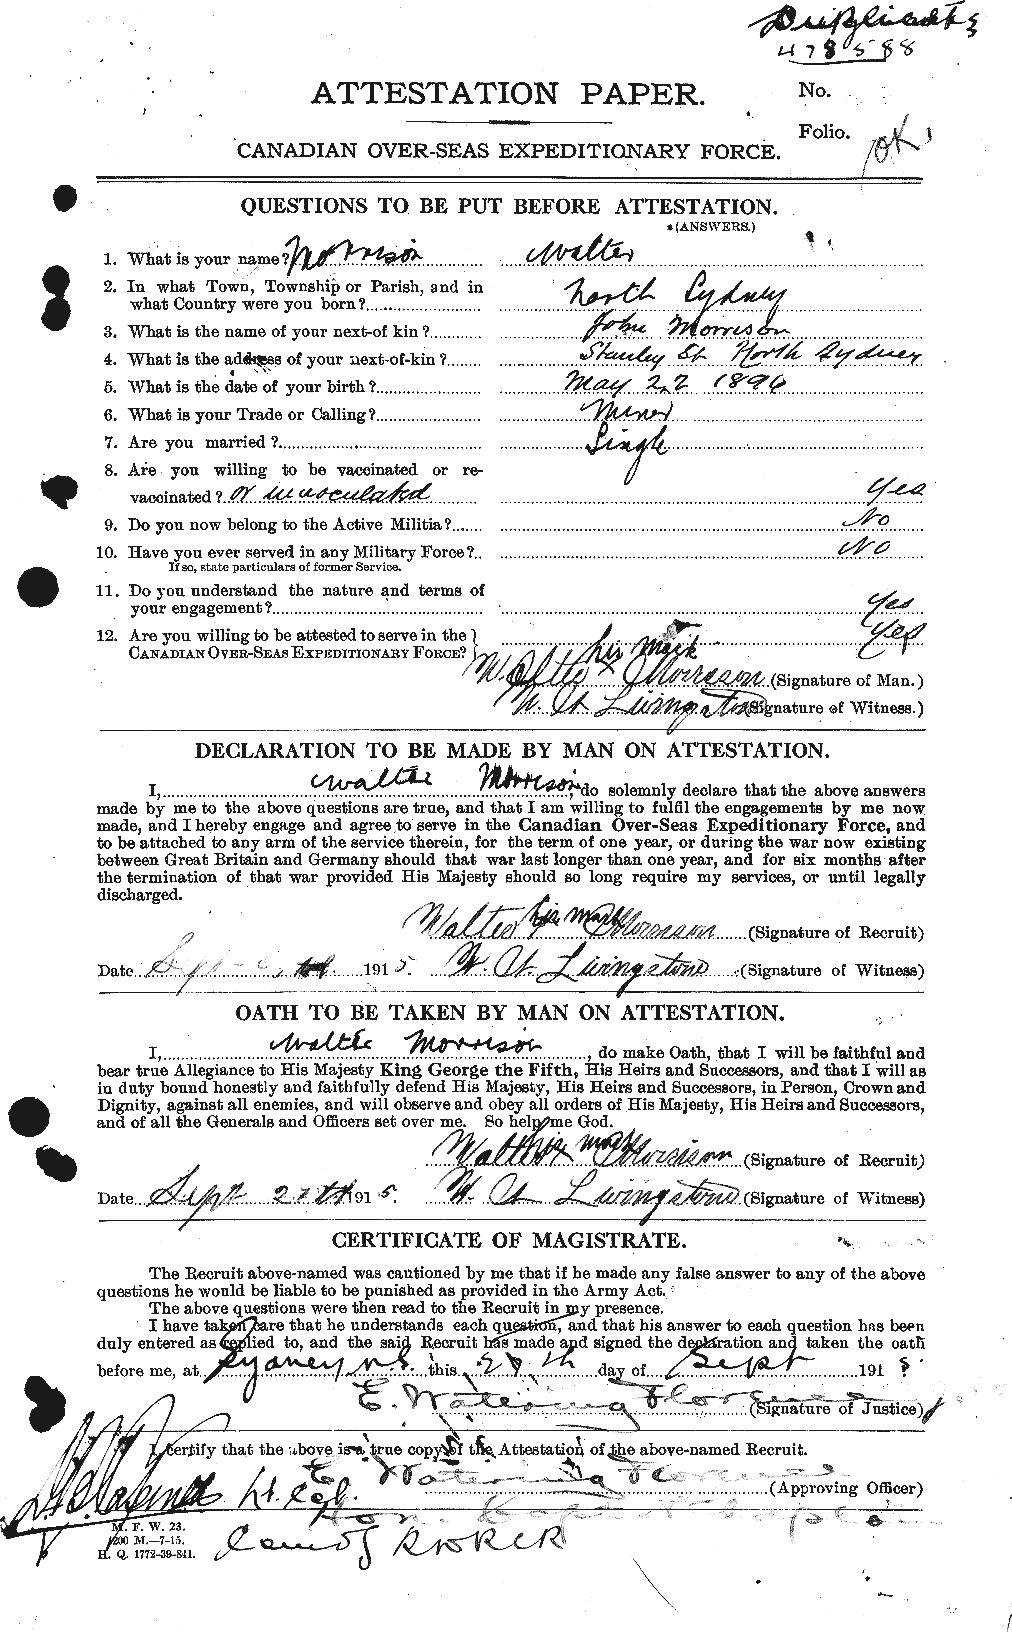 Duplicate
478588
ATTESTATION PAPER.
No.
Folio.
OK
CANADIAN OVER-SEAS EXPEDITIONARY FORCE.
QUESTIONS TO BE PUT BEFORE ATTESTATION.
(ANSWERS.)
1. What is your name? Morrison Walter
2. In what Town, Township or Parish, and in
what Country were you born? North Sydney
3. What is the name of your next-of kin? John Morrison
4. What is the address of your next-of-kin? Stanley St. North Sydney
5. What is the date of your birth? May 22 1896
6. What is your Trade or Calling? Miner
7. Are you married? Single
8. Are you willing to be vaccinated or re-
vaccinated? or innoculated Yes
9. Do you now belong to the Active Militia? No
10. Have you ever served in any Military Force? No
If so, state particulars of former Service.
11. Do you understand the nature and terms of
your engagement? Yes
12. Are you willing to be attested to serve in the Yes
CANADIAN OVER-SEAS EXPEDITIONARY FORCE?
his mark
Walter x Morrison (Signature of Man.)
Livingstone (Signature of Witness.)
DECLARATION TO BE MADE BY MAN ON ATTESTATION.
I, Walter Morrison, do solemnly declare that the above answers
made by me to the above questions are true, and that I am willing to fulfil the engagements by me now
made, and I hereby engage and agree to serve in the Canadian Over-Seas Expeditionary Force, and
to be attached to any arm of the service therein, for the term of one year, or during the war now existing
between Great Britain and Germany should that war last longer than one year, and for six months after
the termination of that war provided His Majesty should so long require my services, or until legally
discharged.
his mark
Walter x Morrison (Signature of Recruit)
Date Sept 1915. Livingstone (Signature of Witness)
OATH TO BE TAKEN BY MAN ON ATTESTATION.
I, Walter Morrison, do make Oath, that I will be faithful and
bear true Allegiance to His Majesty King George the Fifth, His Heirs and Successors, and that I will as
in duty bound honestly and faithfully defend His Majesty, His Heirs and Successors, in Person, Crown and
Dignity, against all enemies, and will observe and obey all orders of His Majesty, His Heirs and Successors,
and of all the Generals and Officers set over me. So help me God.
his mark
Walter x Morrison (Signature of Recruit)
Date Sept 1915. Livingstone (Signature of Witness)
CERTIFICATE OF MAGISTRATE.
The Recruit above-named was cautioned by me that if he made any false answer to any of the above
questions he would be liable to be punished as provided in the Army Act.
The above questions were then read to the Recruit in my presence.
I have taken care that he understands each question, and that his answer to each question has been
duly entered as replied to, and the said Recruit has made and signed the declaration and taken the oath
before me, at Sydney N.S. this day of Sept 191
E. Watering Florence (Signature of Justice)
I certify that the above is a true copy of the Attestation of the above-named Recruit.
E. Watering Florence (Approving Officer)
Lt. Col.
M. F. W. 23.
200 M.—7-15.
H. Q. 1772-39-841.